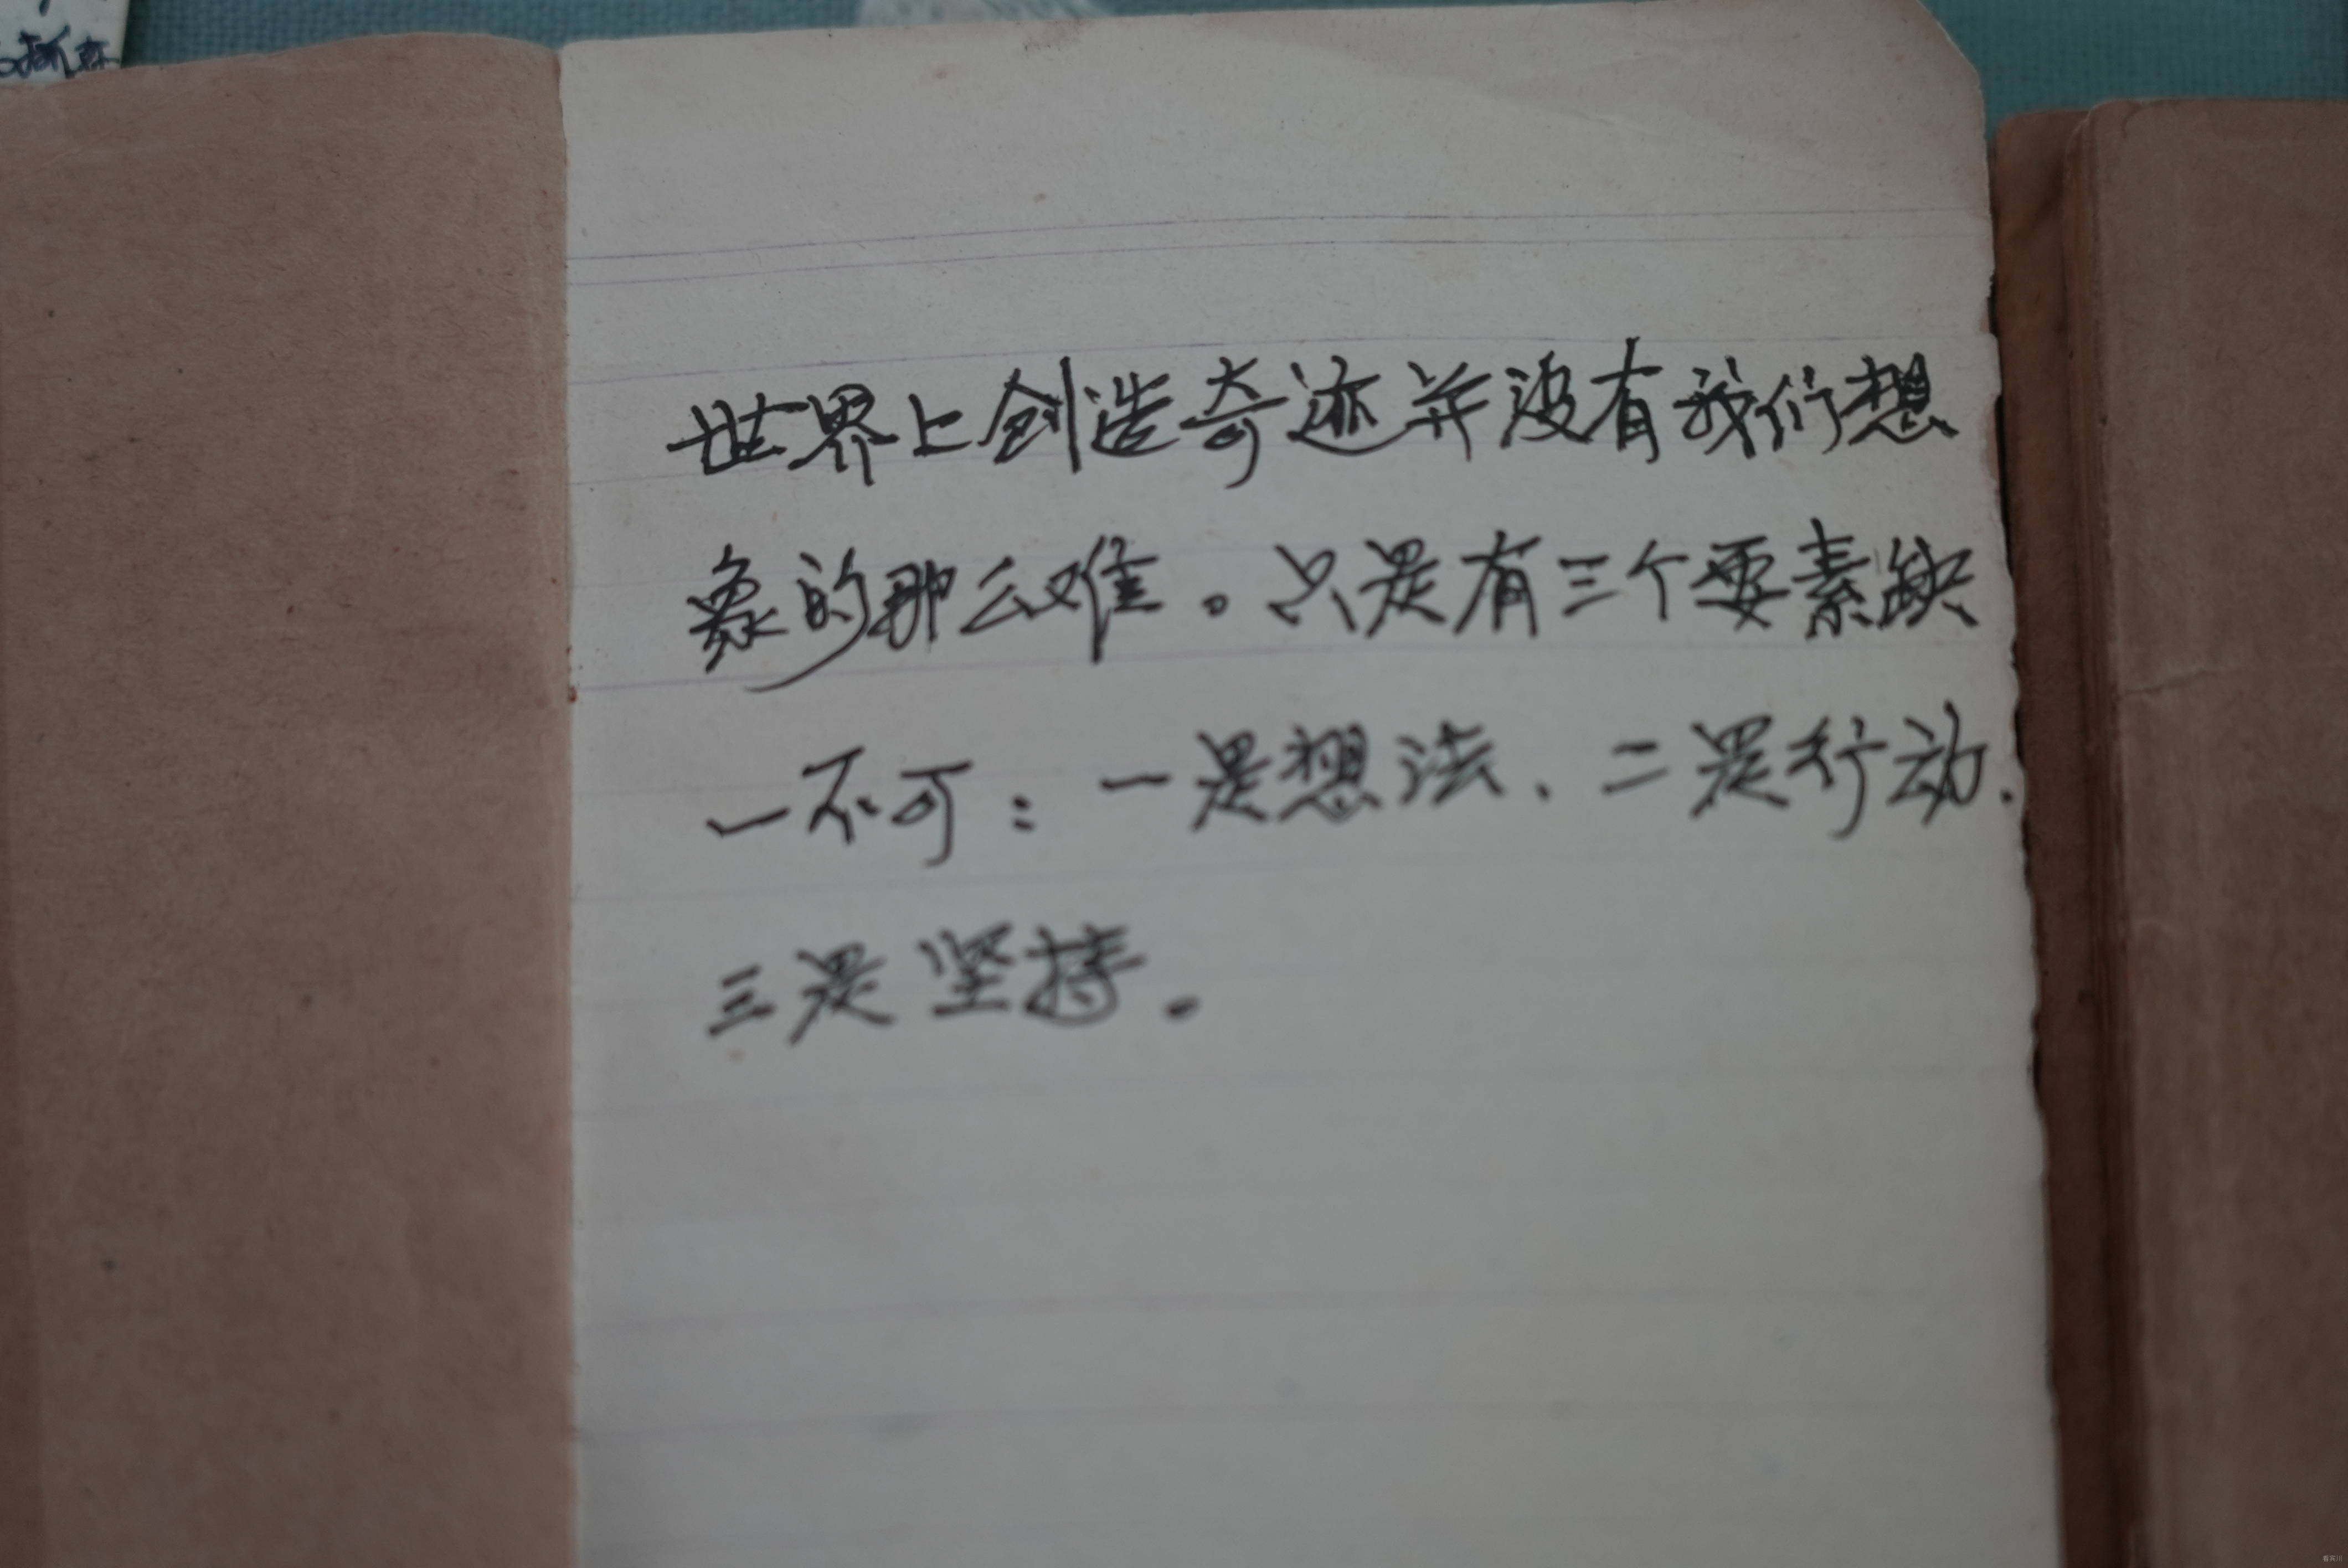 世界上创造奇迹并没有我们想
象的那么难。只是有三个要素缺
一不可：一是想法、二是行动.
三是坚持。